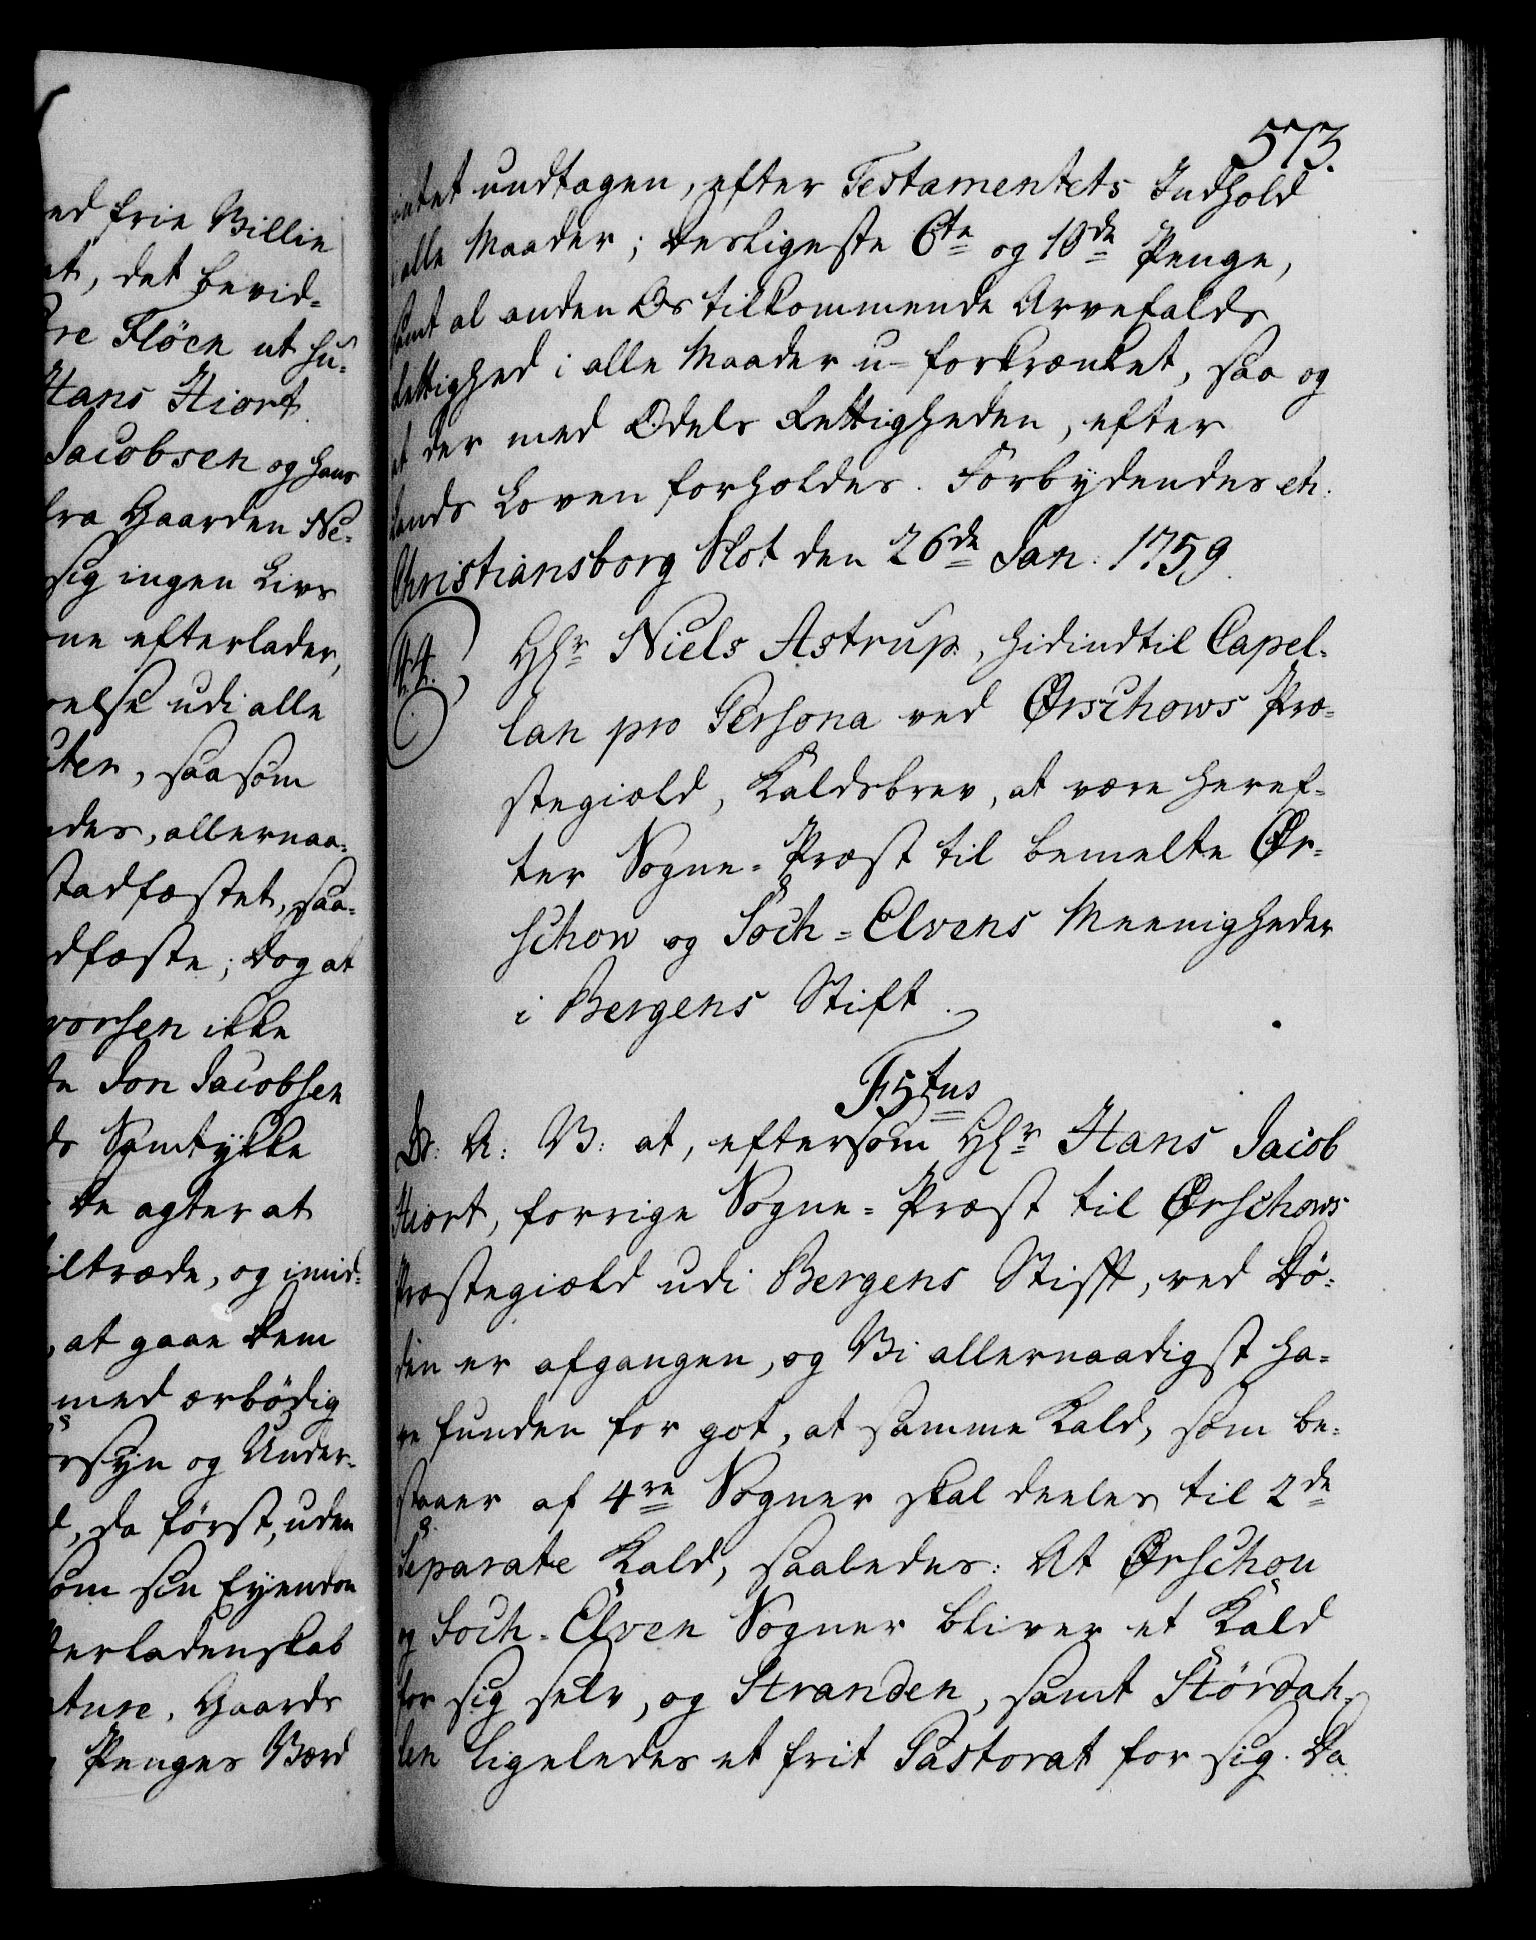 ed frie Villie
at, det bevid-
re Flöen at hu-
Hans Hiort
Jacobsen og hans
fra Gaarden Ne-
sig ingen Livs
ne efterlader,
else udi alle
ter, saasom
des, allernaa-
stadfæstet, saa-
dfæste; Dog at
vorsen ikke
te Jon Jacobsen
ds Samtykke
De agter at
iltræde, og imid-
, at gaae Dem
med ærbödig
rsyn og Under-
d, da först, uden
som sin Eyendom
terladenskab
ture, Gaards
Penges Værd
573.
intet undtagen, efter Testamentets Indhold
i alle Maader; Desligeste 6te og 10de Penge,
samt al anden Os tilkommende Arvefalds
Rettighed i alle Maader u-forkrænket, saa og
at der med Odels Rettigheden, efter
Lands Loven forholdes. Forbydendes etc.
Christiansborg Slot den 26de Jan: 1759.
44.) Hr Niels Astrup, hidindtil Capel-
lan pro Persona ved Ørschows Præ-
stegiæld, Kaldsbrev, at være heref-
ter Sogne-Præst til bemelte Ør-
schow og Söch-Elvens Meenigheder
i Bergens Stift.
F5tus
Gr: A: V: at, eftersom Hr Hans Jacob
Hiort, forrige Sogne-Præst til Ørschows
Præstegiæld udi Bergens Stift, ved Dö-
den er afgangen, og Vi allernaadigst ha-
ve funden for got, at samme Kald, som be-
staaer af 4re Sogner skal deeles til 2de
Separate Kald, saaledes: At Ørschou
og Söch-Elven Sogner bliver et Kald
for sig selv, og Stranden, samt Stördah-
len ligeledes et frit Pastorat for sig. Da